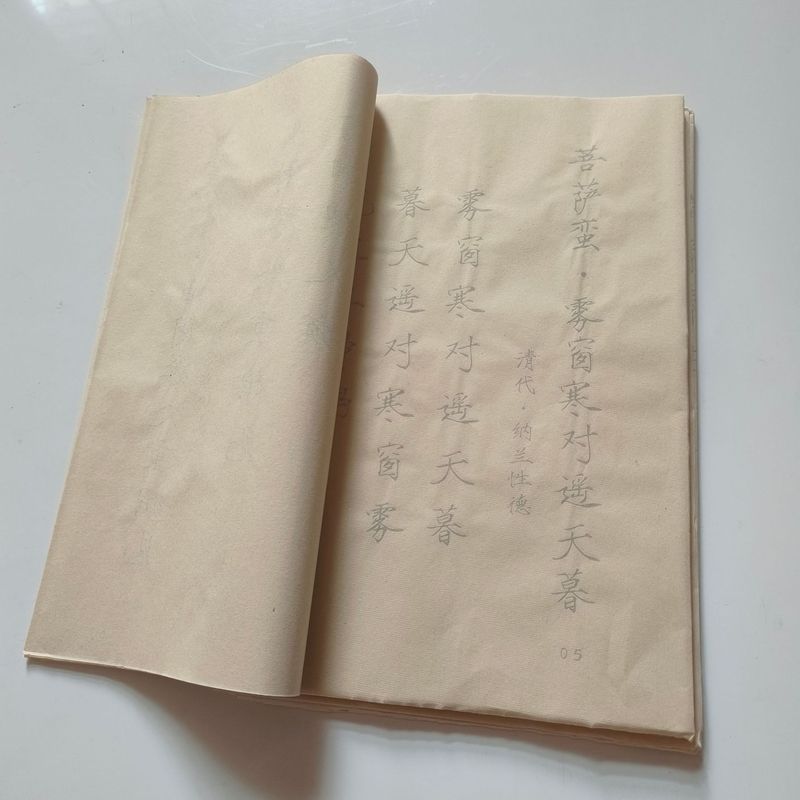 菩萨蛮·雾窗寒对遥天暮
05
清代·纳兰性德
雾窗寒对遥天暮
暮天遥对寒窗雾